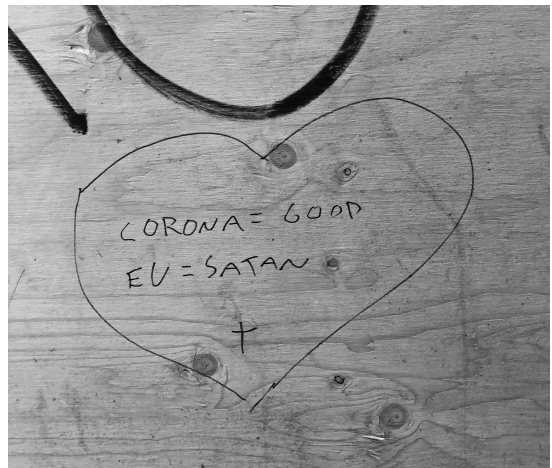 CORONA = GOOD
EU = SATAN